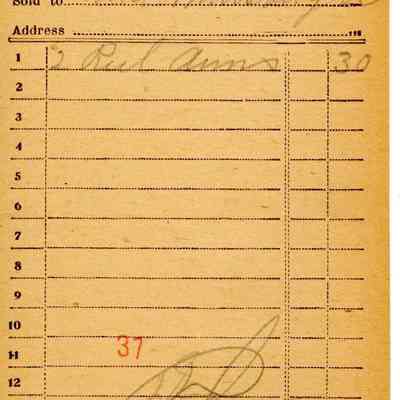 Sold to
Address
1 2 Reel Arms 30
2
3
4
5
6
7
8
9
10
11 37
12